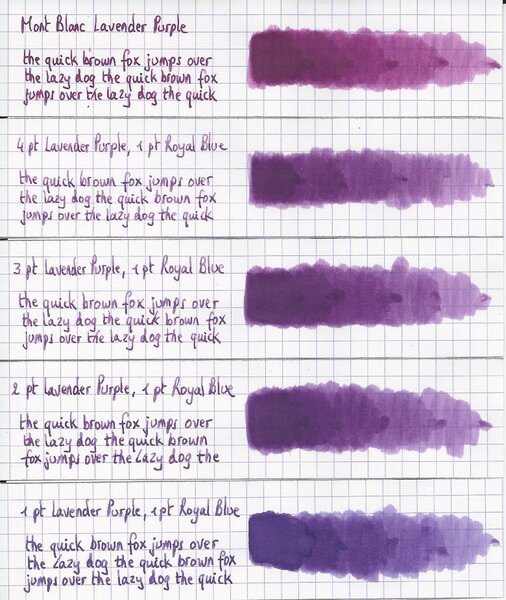 Mont Blanc Lavender Purple
the quick brown fox jumps over
the lazy dog the quick brown fox
jumps over the lazy dog the quick
4 pt Lavender Purple, 1 pt Royal Blue
the quick brown fox jumps over
the lazy dog the quick brown fox
jumps over the lazy dog the quick
3 pt Lavender Purple, 1 pt Royal Blue
the quick brown fox jumps over
the lazy dog the quick brown fox
jumps over the lazy dog the quick
2 pt Lavender Purple, 1 pt Royal Blue
the quick brown fox jumps over
the lazy dog the quick brown
fox jumps over the lazy dog the
1 pt Lavender Purple, 1 pt Royal Blue
the quick brown fox jumps over
the lazy dog the quick brown fox
jumps over the lazy dog the quick